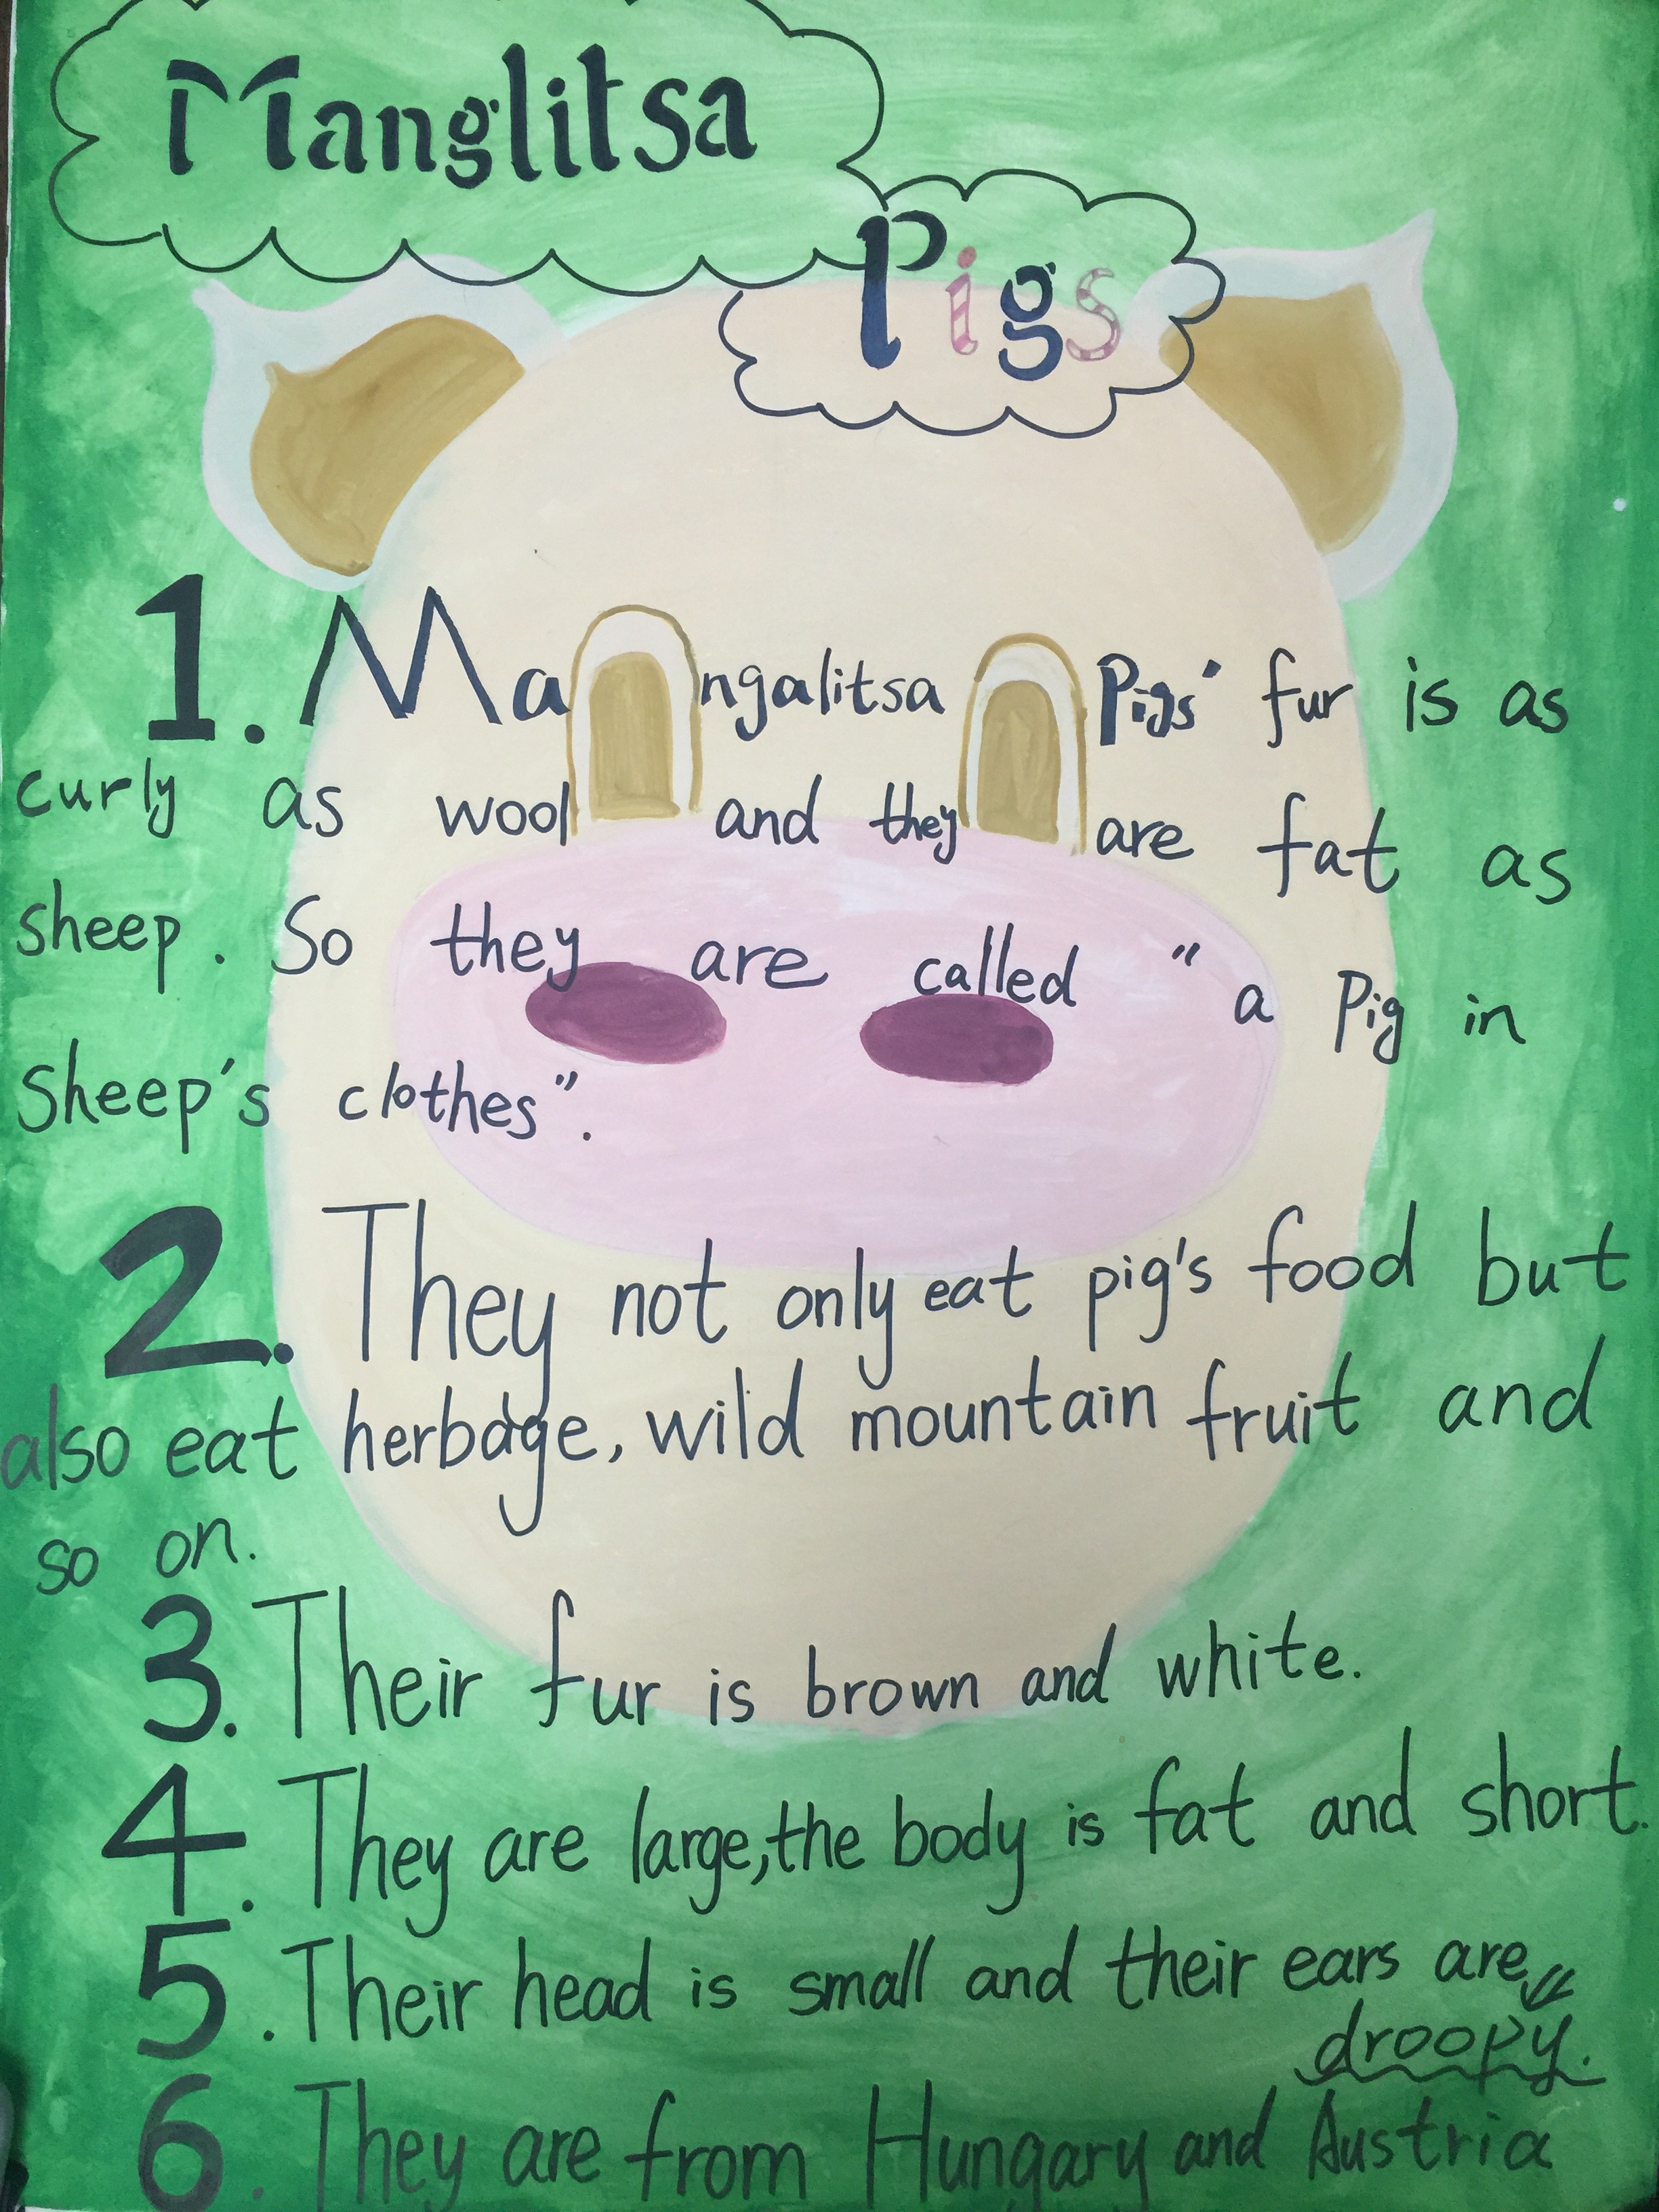 Manglitsa
Pigs
1. Mangalitsa Pigs' fur is as
curly as wool and they are fat as
sheep. So they are called "a Pig in
Sheep's clothes".
2. They not only eat pig's food but
also eat herbage, wild mountain fruit and
so on.
3. Their fur is brown and white.
4. They are large, the body is fat and short.
5. Their head is small and their ears are
droopy.
6. They are from Hungary and Austria